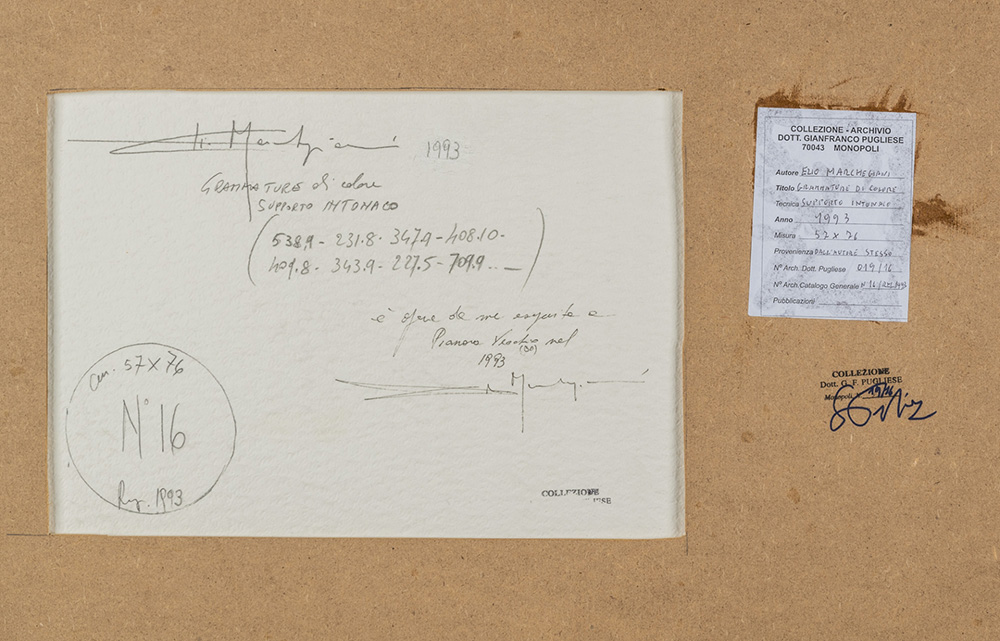 1993
GRAMMATURE di colore
SUPPORTO INTONACO
(538,9 - 231.8 - 347.9 - 408.10 -
409.8 - 343.9 - 227.5 - 709.9 .. _)
è opera da me eseguita a
Pianoro Vecchio (BO) nel
1993
cm. 57 x 76
N° 16
1993
COLLEZIONE
COLLEZIONE - ARCHIVIO
DOTT. GIANFRANCO PUGLIESE
70043 MONOPOLI
Autore ELIO MARCHEGIANI
Titolo GRAMMATURE DI COLORE
Tecnica SUPPORTO
Anno 1993
Misura 57 x 76
Provenienza DALL'AUTORE STESSO
N° Arch. Dott. Pugliese 019/16
N° Arch. Catalogo Generale N 16
Pubblicazioni
COLLEZIONE
Dott. G. F. PUGLIESE
Monopoli, N. 19/16